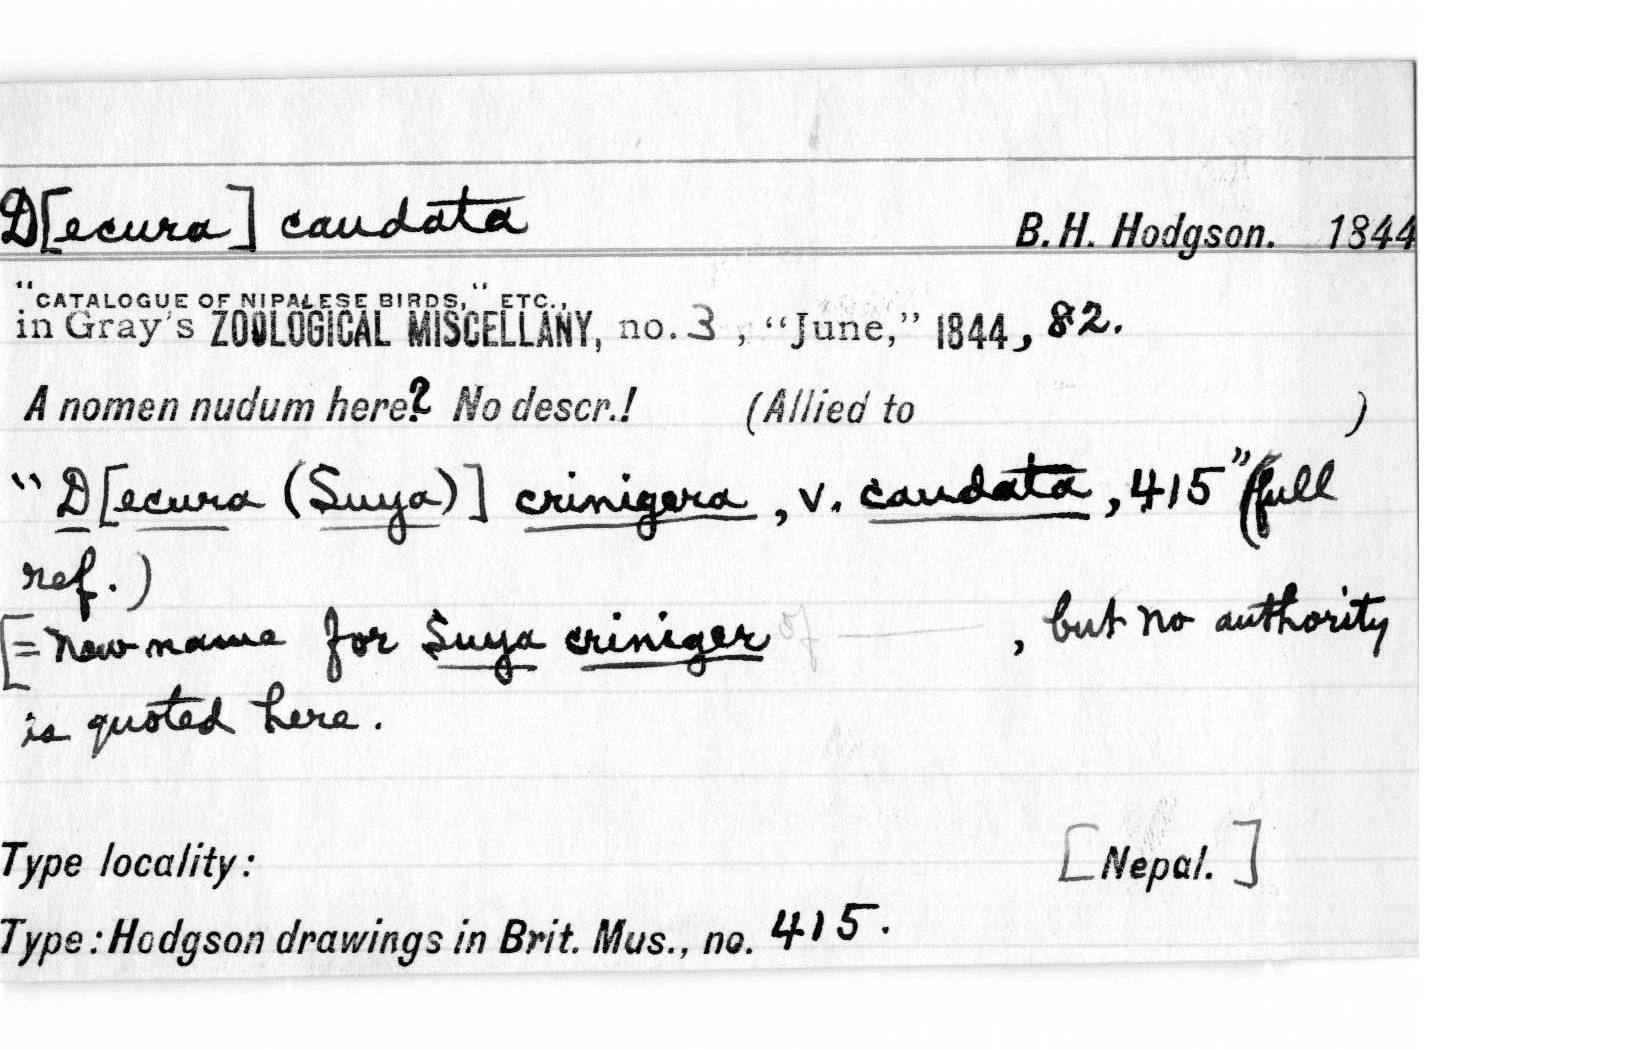 D[ecura] caudata B. H. Hodgson. 1844
"CATALOGUE OF NIPALESE BIRDS," ETC.,
in Gray's ZOOLOGICAL MISCELLANY, no. 3, "June," 1844, 82.
A nomen nudum here? No descr.! (Allied to )
"D[ecura (Suya)] crinigera, v. caudata, 415" (full
ref.)
[= New name for Suya criniger of —, but no authority
is quoted here.
Type locality: [Nepal.]
Type: Hodgson drawings in Brit. Mus., no. 415.